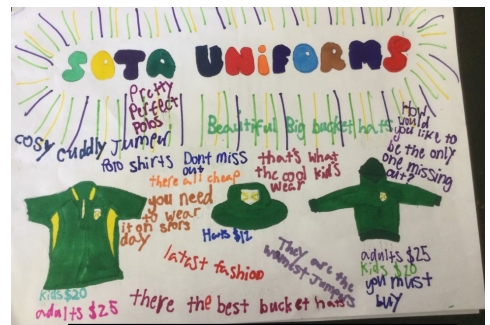 SOTA UNIFORMS
Pretty
Perfect
Polos
Beautiful Big bucket hats
How
would
you like to
be the only
one missing
out?
cosy cuddly Jumper
Polo shirts
Dont miss
out
that's what
the cool kids
wear
there all cheap
you need
to wear
it on sports
day
Hats $12
latest fashion
They are the
warmest Jumpers
adults $25
kids $20
you must
buy
kids $20
adults $25
there the best bucket hats